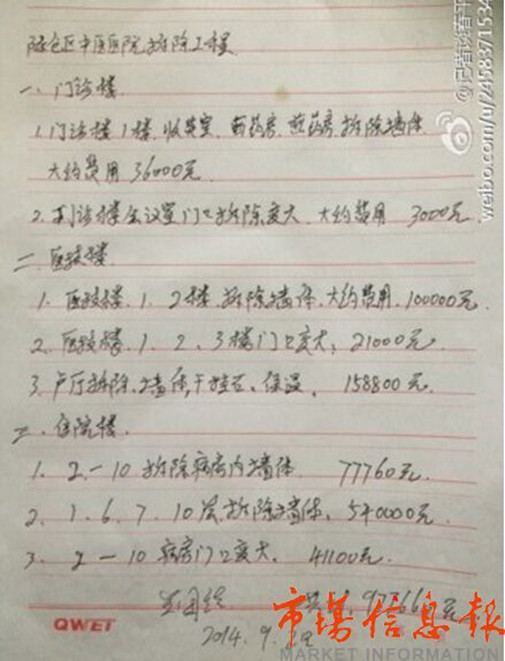 陈仓区中医医院拆除工程
一、门诊楼
1.门诊楼1楼、收费室、西药房、煎药房、拆除墙体
大约费用36000元
2.门诊楼会议室门口拆除变大、大约费用 3000元
二、医技楼
1. 医技楼、1、2楼、拆除墙体、大约费用、100000元
2. 医技楼、1、2、3楼门口变大、21000元
3. 拆除、墙体、干挂石、保温、158800元
三、住院楼
1. 2—10 拆除病房内墙体 77760元
2. 1、6、7、10层、拆除墙体、540000元
3. 2—10 病房门口变大、41100元
共: 977660元
2014.9.
QWEI
@记者谈春平
weibo.com/u/2458371534
市场信息报
MARKET INFORMATION